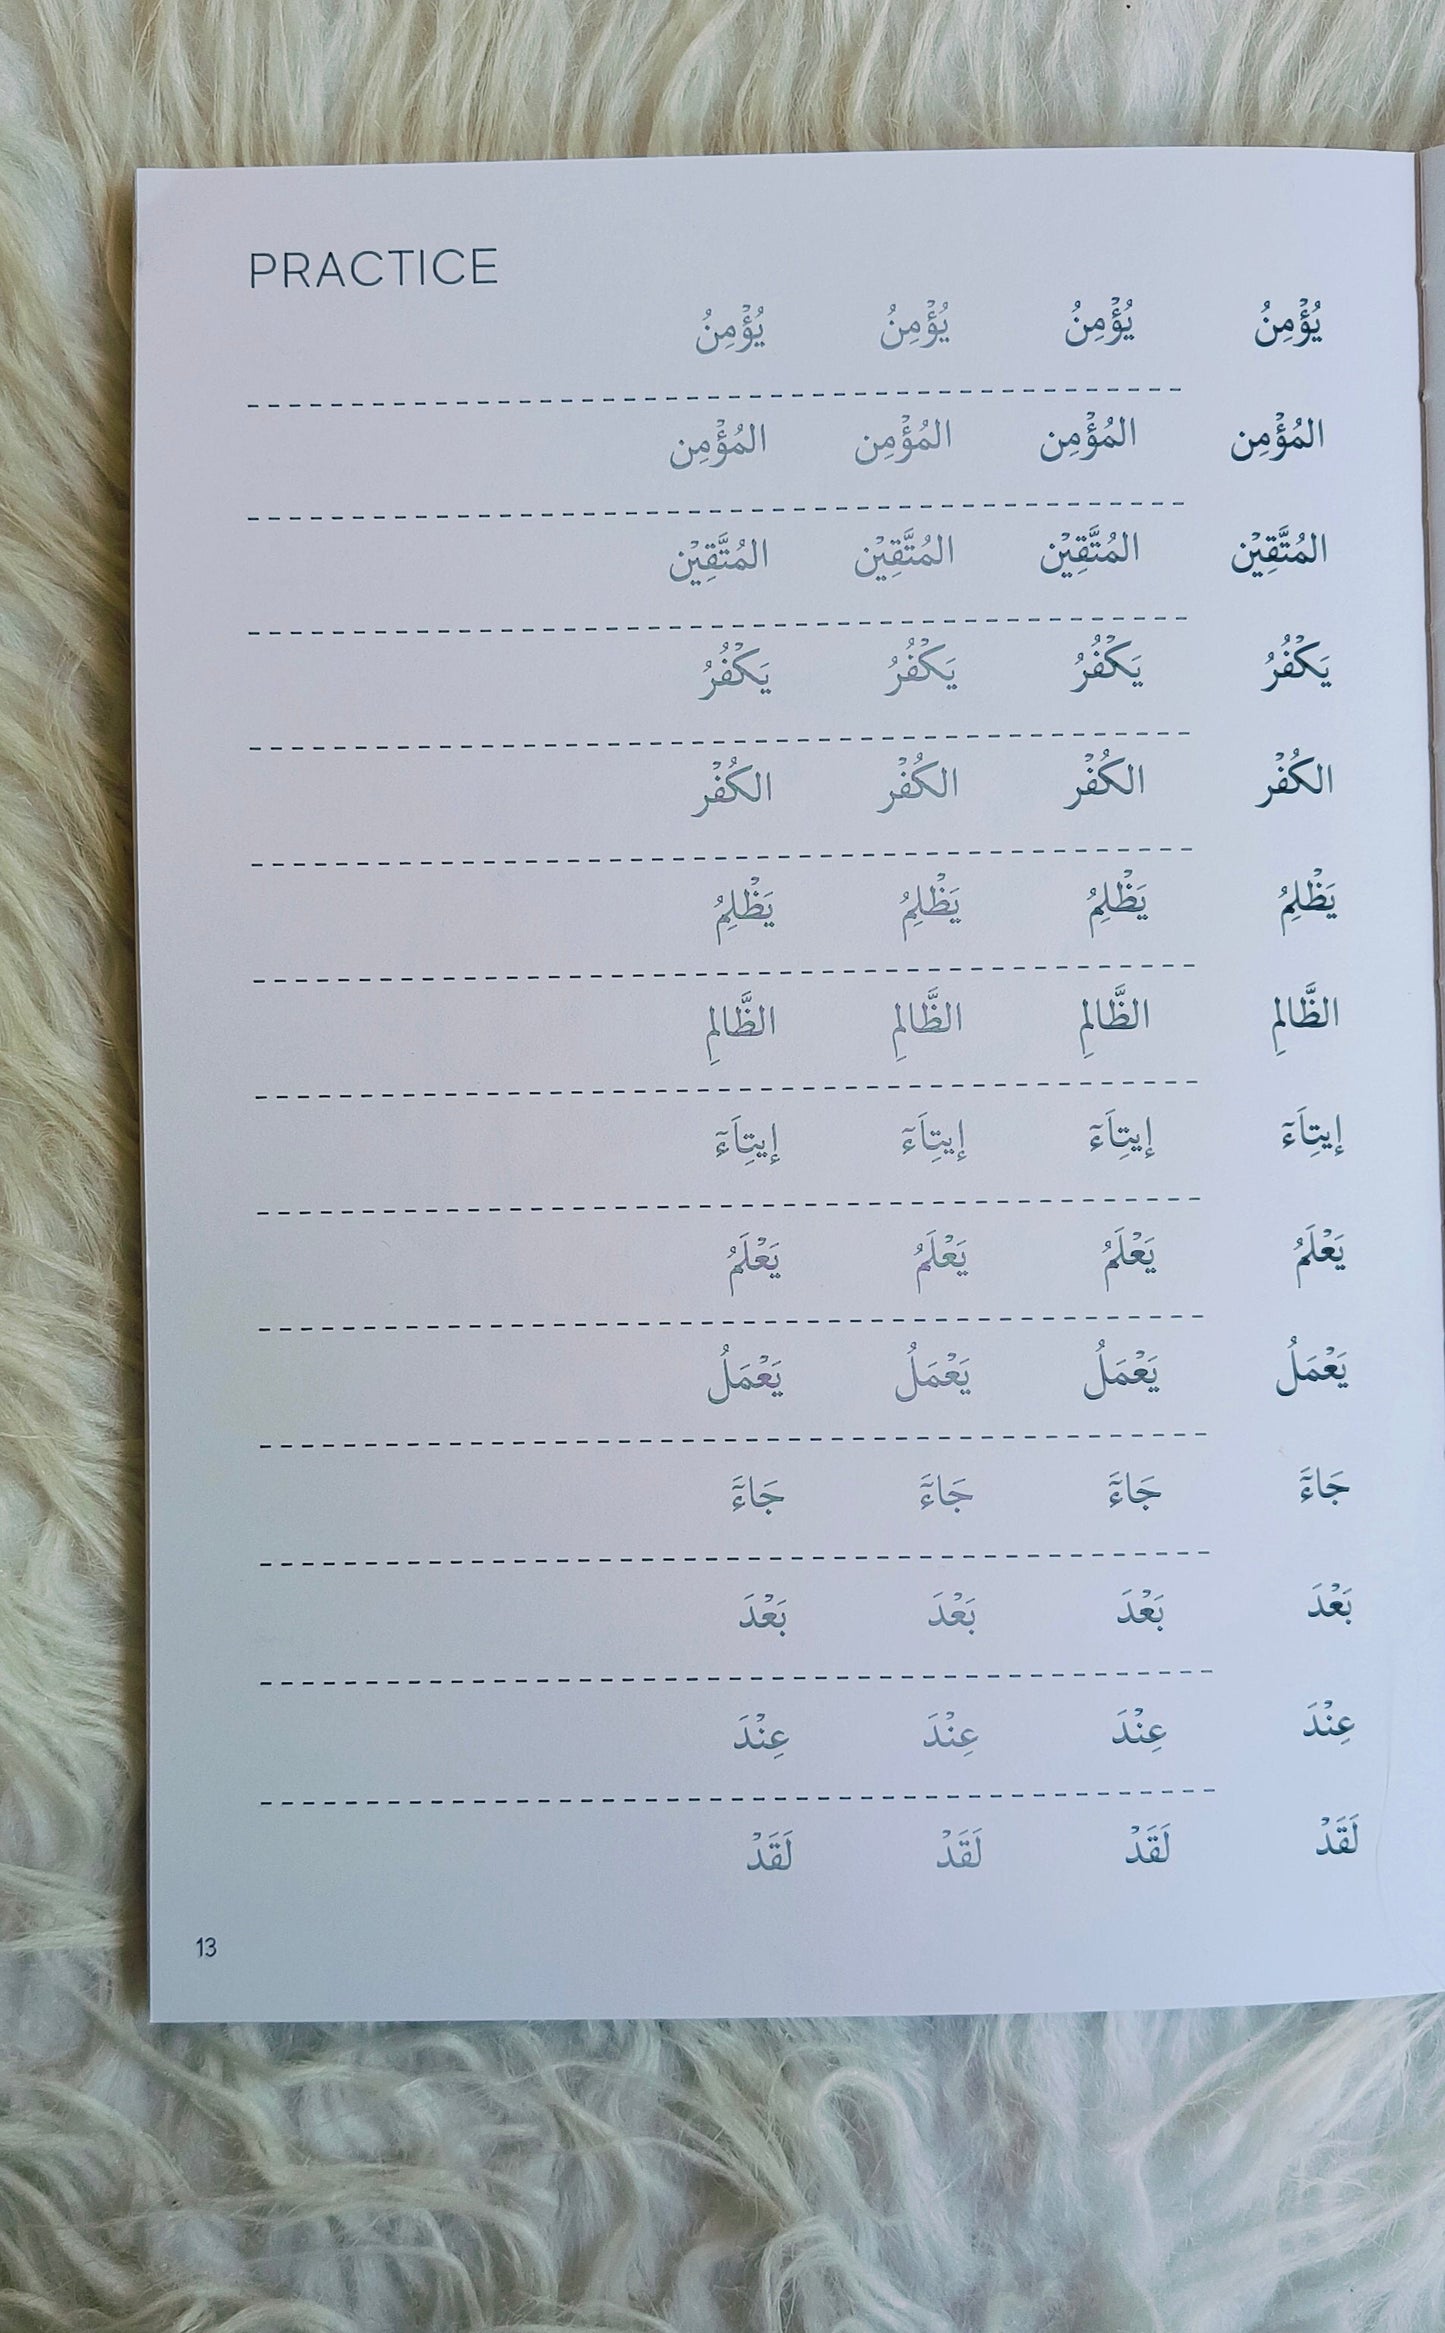 PRACTICE
يُؤْمِنُ يُؤْمِنُ يُؤْمِنُ يُؤْمِنُ
المُؤْمِن المُؤْمِن المُؤْمِن المُؤْمِن
المُتَّقِيْن المُتَّقِيْن المُتَّقِيْن المُتَّقِيْن
يَكْفُرُ يَكْفُرُ يَكْفُرُ يَكْفُرُ
الكُفْر الكُفْر الكُفْر الكُفْر
يَظْلِمُ يَظْلِمُ يَظْلِمُ يَظْلِمُ
الظَّالمِ الظَّالمِ الظَّالمِ الظَّالمِ
إيتِاَءَٓ إيتِاَءَٓ إيتِاَءَٓ إيتِاَءَٓ
يَعْلَمُ يَعْلَمُ يَعْلَمُ يَعْلَمُ
يَعْمَلُ يَعْمَلُ يَعْمَلُ يَعْمَلُ
جَاءَٓ جَاءَٓ جَاءَٓ جَاءَٓ
بَعْدَ بَعْدَ بَعْدَ بَعْدَ
عِنْدَ عِنْدَ عِنْدَ عِنْدَ
لَقَدْ لَقَدْ لَقَدْ لَقَدْ
13